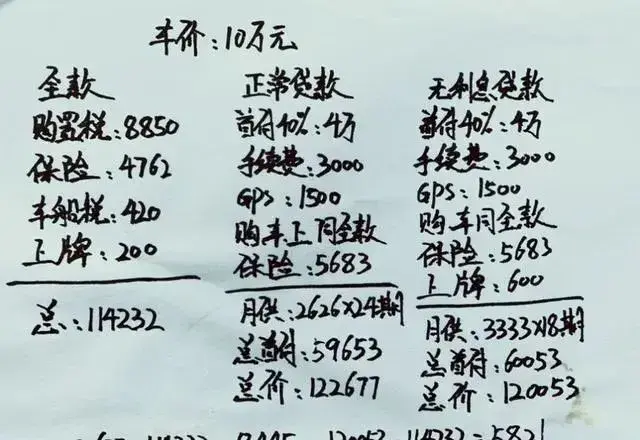 车价:10万元
全款
购置税:8850
保险:4762
车船税:420
上牌:200
总:114232
正常贷款
首付40%:4万
手续费:3000
GPS:1500
购车上同全款
保险:5683
月供:2626×24期
总首付:59653
总价:122677
无利息贷款
首付40%:4万
手续费:3000
GPS:1500
购车同全款
保险:5683
上牌:600
月供:3333×18期
总首付:60053
总价:120053